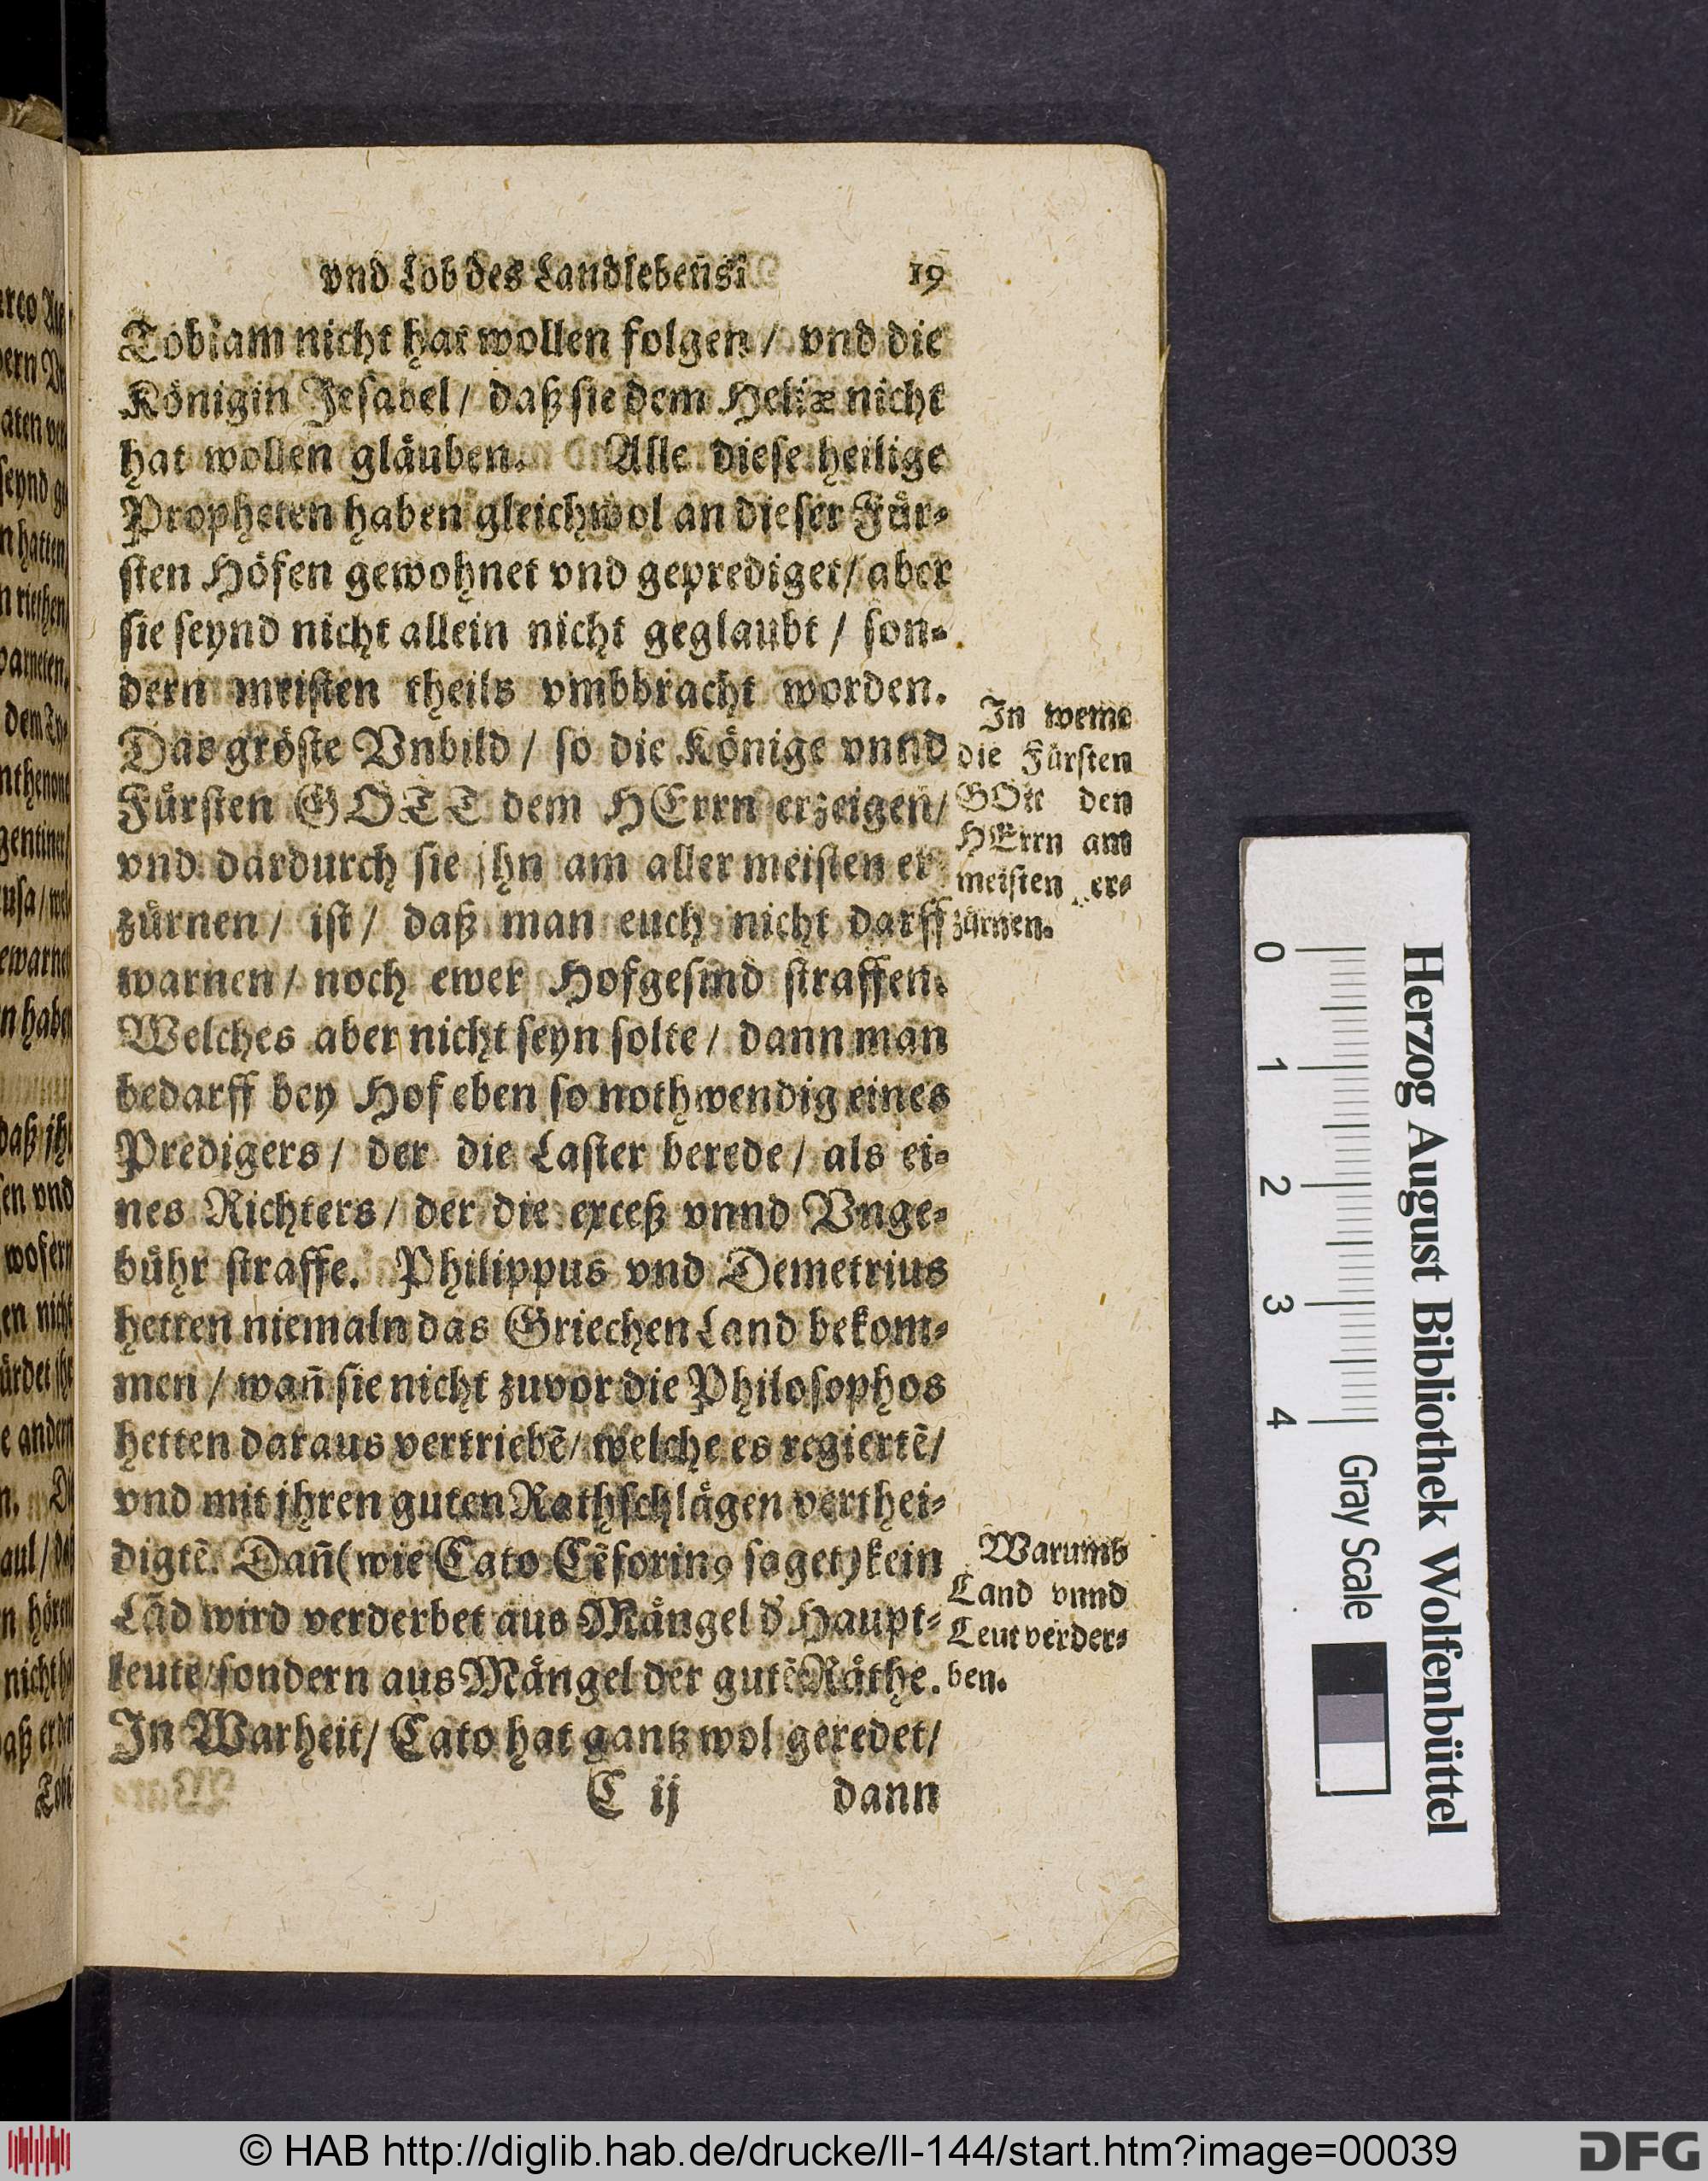 vnd Lob des Landlebens. 19
Tobiam nicht hat wollen folgen / vnd die
Königin Jesabel / daß sie dem Heliæ nicht
hat wollen gläuben. Alle diese heilige
Propheten haben gleichwol an dieser Für-
sten Höfen gewohnet vnd geprediget / aber
sie seynd nicht allein nicht geglaubt / son-
dern meisten theils vmbbracht worden.
Das gröste Vnbild / so die Könige vnnd
Fürsten GOTT dem HErrn erzeigen /
vnd dardurch sie jhn am aller meisten er-
zürnen / ist / daß man euch nicht darff
warnen / noch ewer Hofgesind straffen.
Welches aber nicht seyn solte / dann man
bedarff bey Hof eben so nothwendig eines
Predigers / der die Laster berede / als ei-
nes Richters / der die exceß vnnd Vnge-
bühr straffe. Philippus vnd Demetrius
hetten niemaln das Griechen Land bekom-
men / wañ sie nicht zuvor die Philosophos
hetten daraus vertriebẽ / welche es regiertẽ /
vnd mit jhren guten Rathschlägen verthei-
digtẽ. Dañ (wie Cato Cẽsorinꝰ saget) kein
Lãd wird verderbet aus Mängel d' Haupt-
leute / sondern aus Mängel der gutẽ Räthe.
In Warheit / Cato hat gantz wol geredet /
C ij dann
In weme
die Fürsten
GOtt den
HErrn am
meisten er-
zürnen.
Warumb
Land vnnd
Leut verder-
ben.
Herzog August Bibliothek Wolfenbüttel
0 1 2 3 4 Gray Scale
© HAB http://diglib.hab.de/drucke/ll-144/start.htm?image=00039
DFG